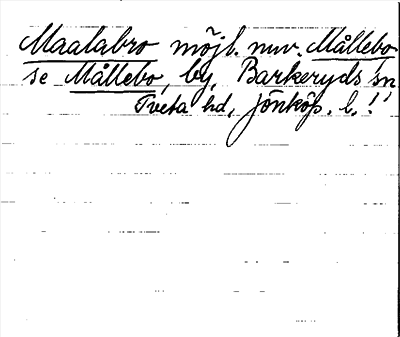 Maalabro möjl. nuv. Mållebo
se Mållebo, by, Barkeryds sn
Tveta hd, Jönköp. l.!